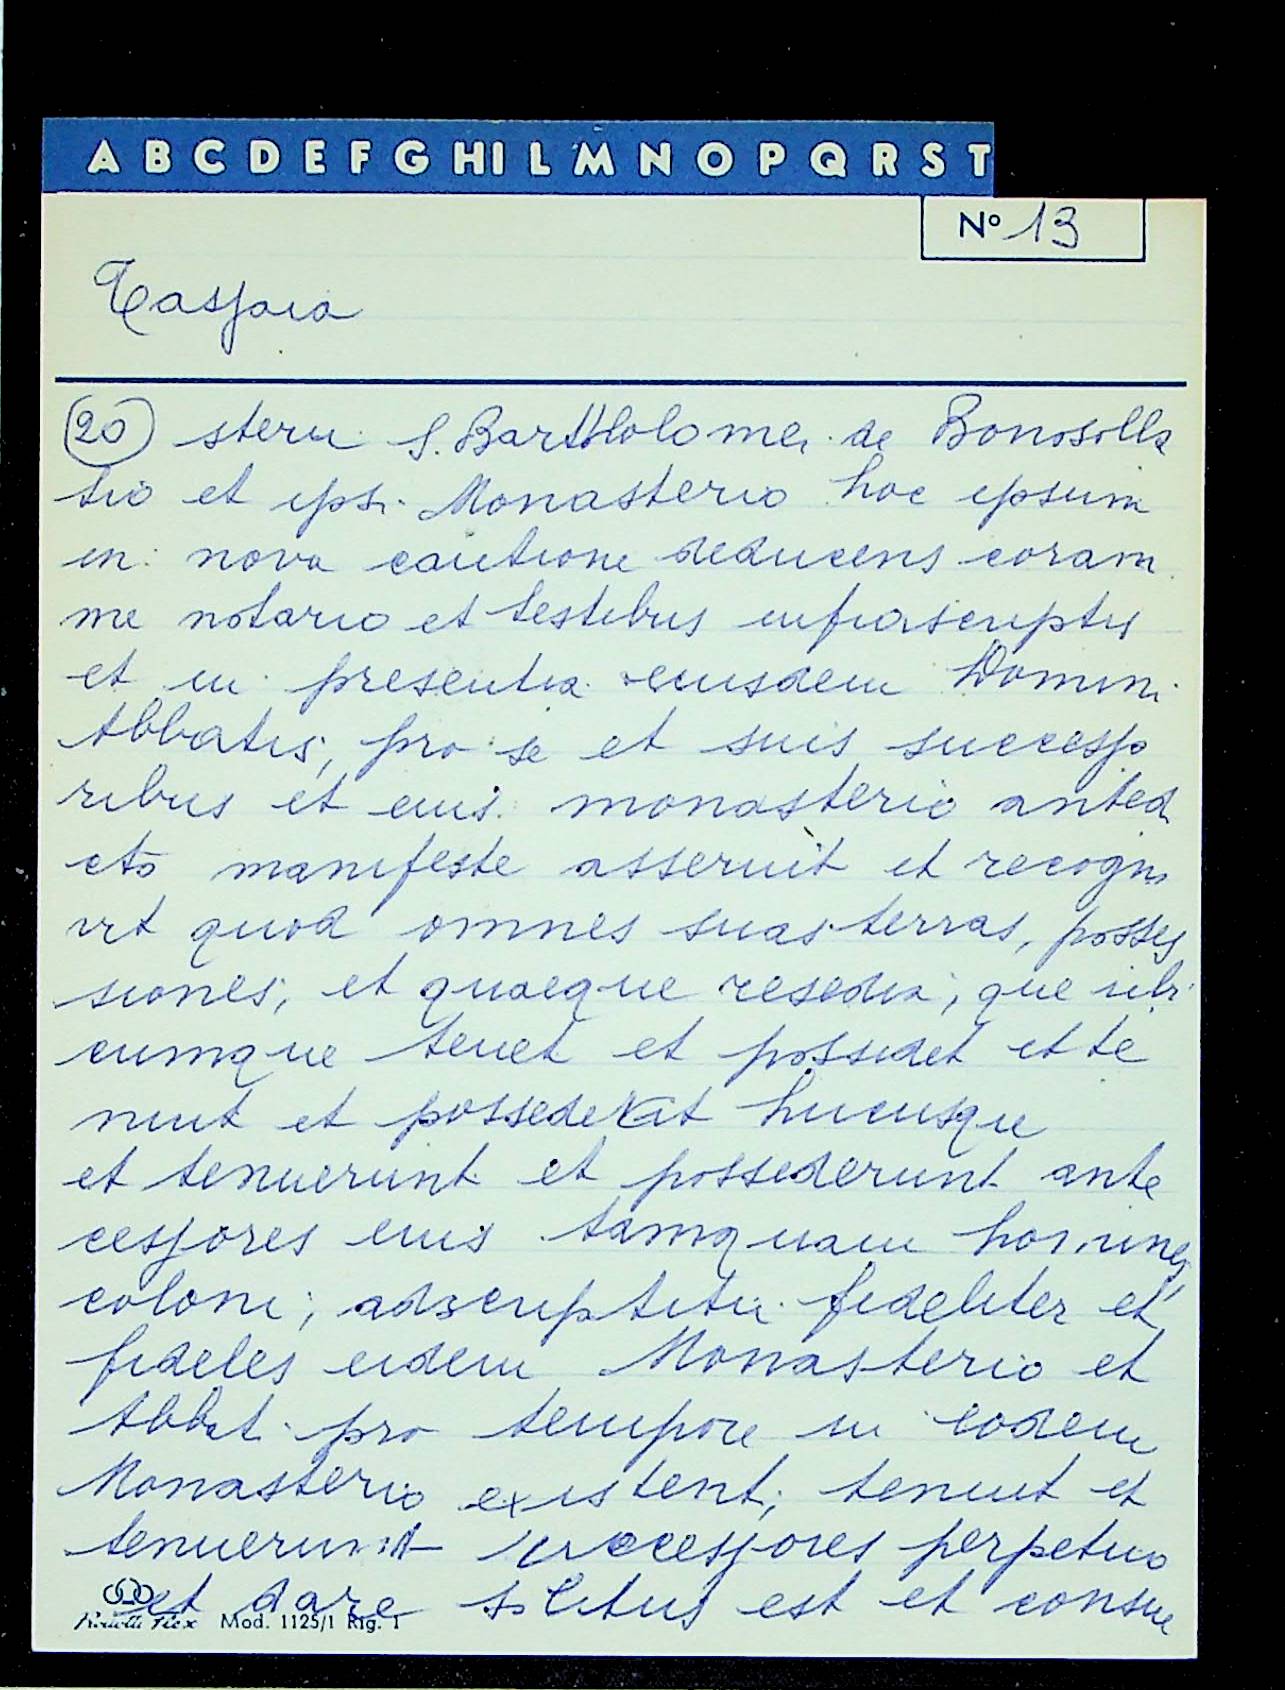 A B C D E F G HI L M N O P Q R S T
Nº 13
Tassaia
20 sterii S. Bartholomei de Bonosolla
tio et ipsi Monasterio hoc ipsum
in nova cautione deducens coram
me notario et testibus infrascriptis
et in presentia eiusdem Domini
Abbatis, pro se et suis successo
ribus et eius monasterio antedi
cto manifeste asseruit et recogno
vit quod omnes suas terras, posses
siones, et quaeque resedia, que ubi
cumque tenet et possidet et te
nuit et possederat hucusque
et tenuerunt et possederunt ante
cessores eius tamquam homines
coloni, adscriptitii fideliter et
fideles eidem Monasterio et
Abbati pro tempore in eodem
Monasterio existenti, tenuit et
tenuerunt successores perpetuo
et dare solitus est et consue
Mod. 1125/1 Rig. 1